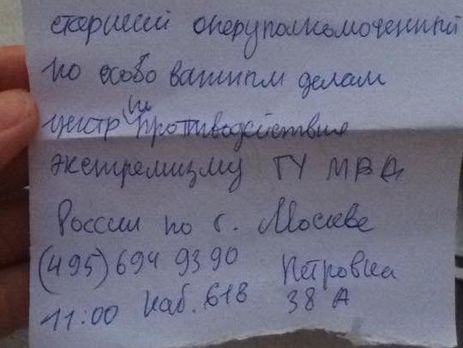 старший оперуполномоченный
по особо важным делам
центр по противодействию
экстремизму ГУ МВД
России по г. Москве
(495) 694 93 90 Петровка
11:00 каб. 618 38 А